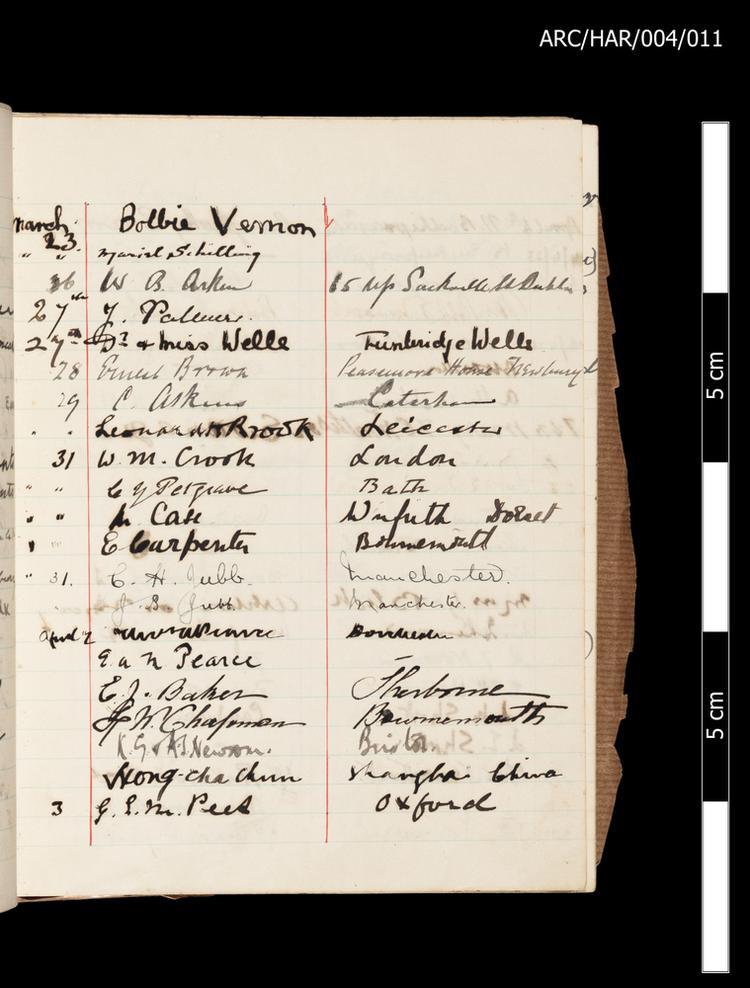 ARC/HAR/004/011
March 23 Bobbie Vernon
" " Muriel Schilling
26 W B. 15 Up Sackville St Dublin
27th J. Palmer.
27th Dr & Miss Wells Tunbridge Wells
28 Ernest Brown Peasemore House Newbury
29 C. Askins Caterham
" " Leonard H Brook Leicester
31 W. M. Crook London
" " C Y Petgrave Bath
" " M. Case Winfrith Dorset
" " E Carpenter Bournemouth
" 31. C. H. Jubb. Manchester.
J B Jubb. Manchester.
April 2 Dorchester
E. A N Pearce
E. J. Baker Sherborne
W. Chapman Bournemouth
K. G & K. S. Newsom. Bristol.
Hong-cha chun Shanghai China
3 G. E. M. Peet Oxford
5 cm
5 cm